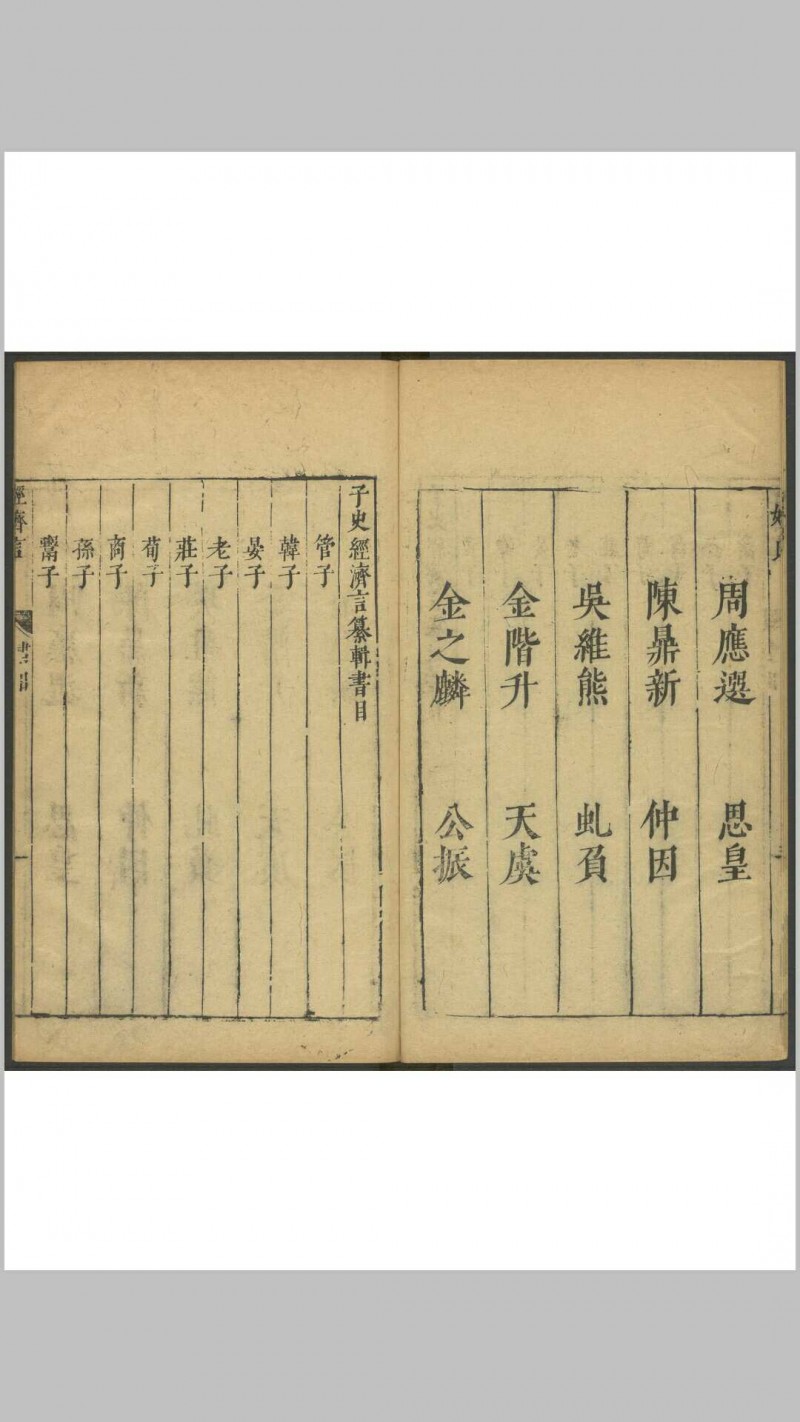 姓氏
周應選 思皇
陳鼎新 仲因
吳維熊 虬負
金階升 天虞
金之麟 公振
子史經濟言纂輯書目
管子
韓子
晏子
老子
莊子
荀子
商子
孫子
鬻子
經濟言 書目 一